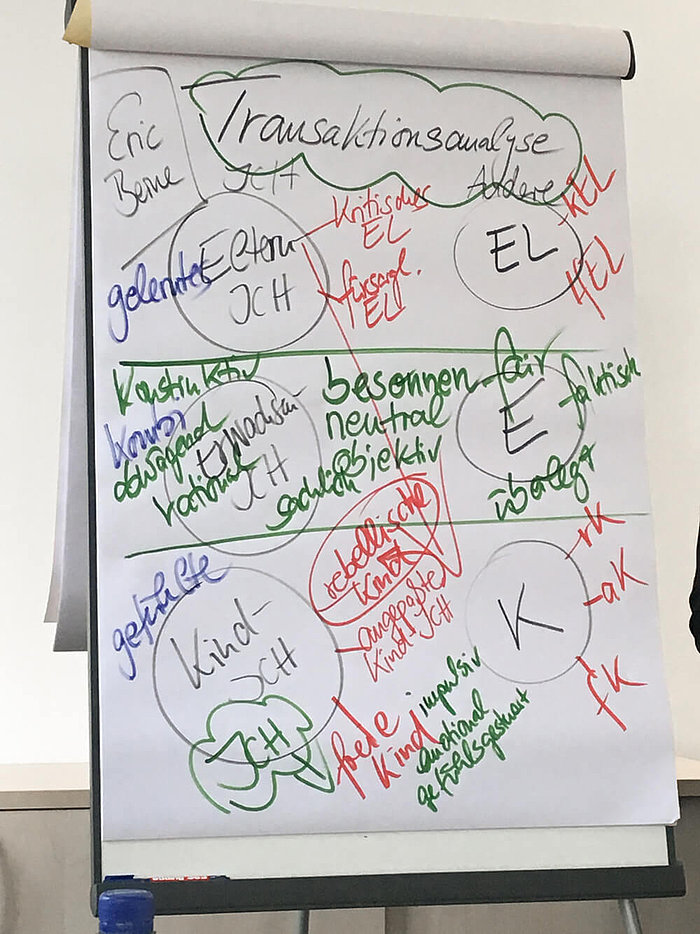 Eric
Berne
Transaktionsanalyse
ICH
Andere
Eltern
ICH
gelerntes
Kritisches
EL
fürsorgl.
EL
EL
kEL
fEL
Konstruktiv
abwägend
rational
Erwachsen
ICH
besonnen
neutral
objektiv
sachlich
fair
E
faktisch
überlegt
gefühlte
Kind-
ICH
ICH
rebellische
Kind
angepaßte
Kind-ICH
freie
Kind
impulsiv
emotional
gefühlsgesteuert
K
rK
aK
fK